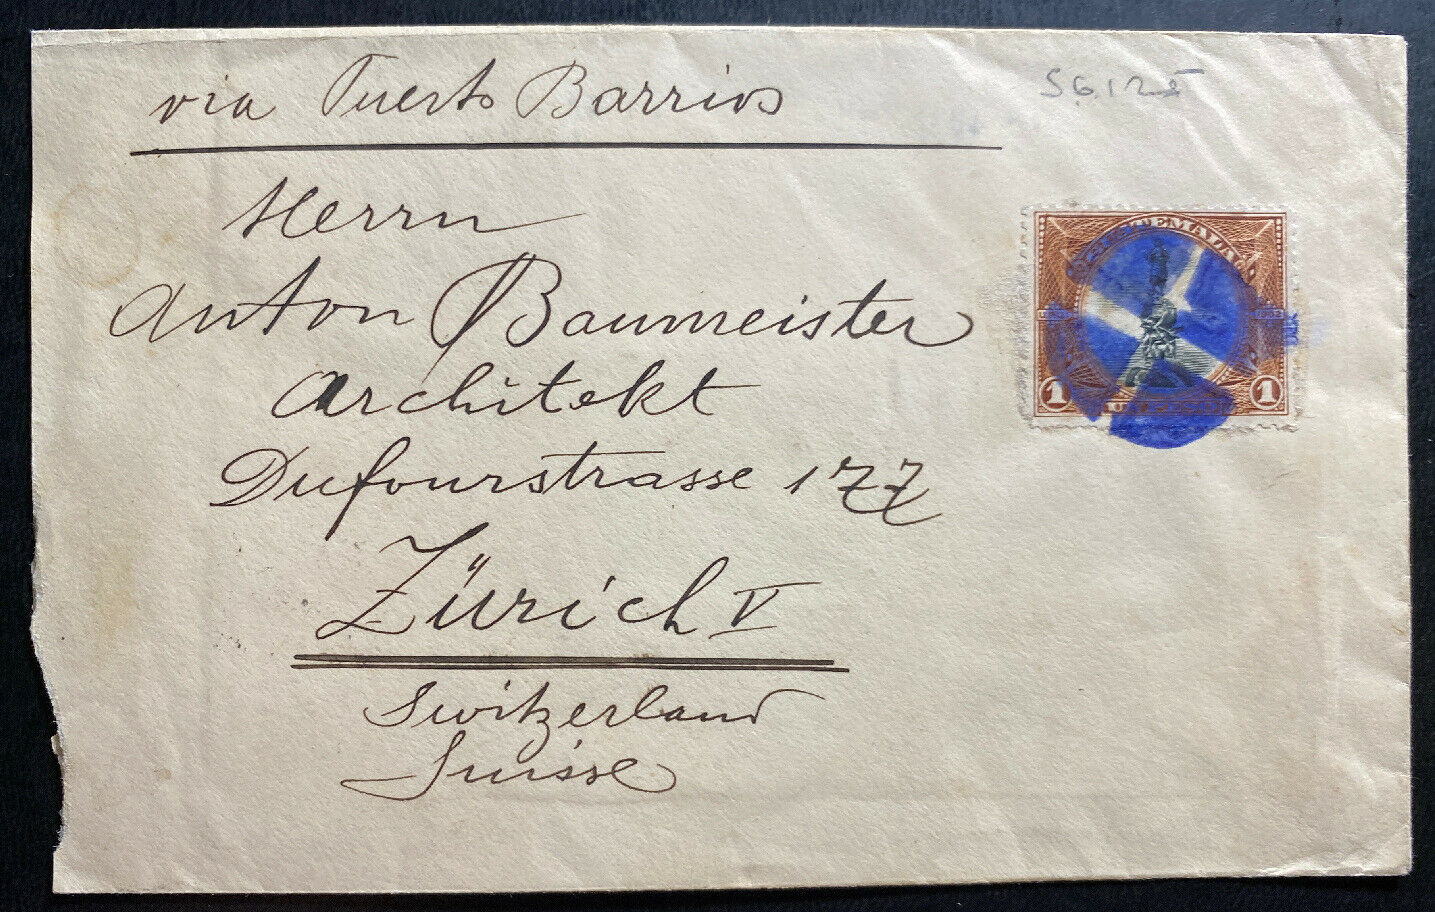 via Puerto Barrios
S.G. 125
Herrn
Anton Baumeister
Architekt
Dufourstrasse 177
Zürich V
Switzerland
Suisse
GUATEMALA
1902
1 1